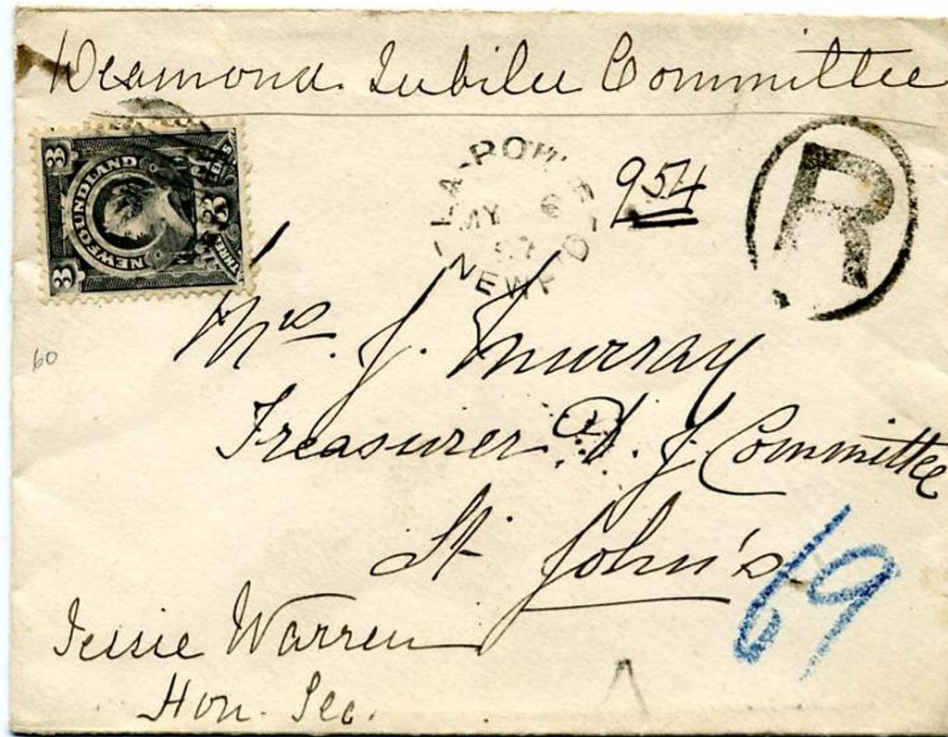 Diamond Jubilee Committee
3 NEWFOUNDLAND 3
THREE CENTS
MY 6
97
NEWF'D
954
R
Mrs. J. Murray
Treasurer D. J. Committee
St. John's
60
69
Jessie Warren
Hon. Sec.